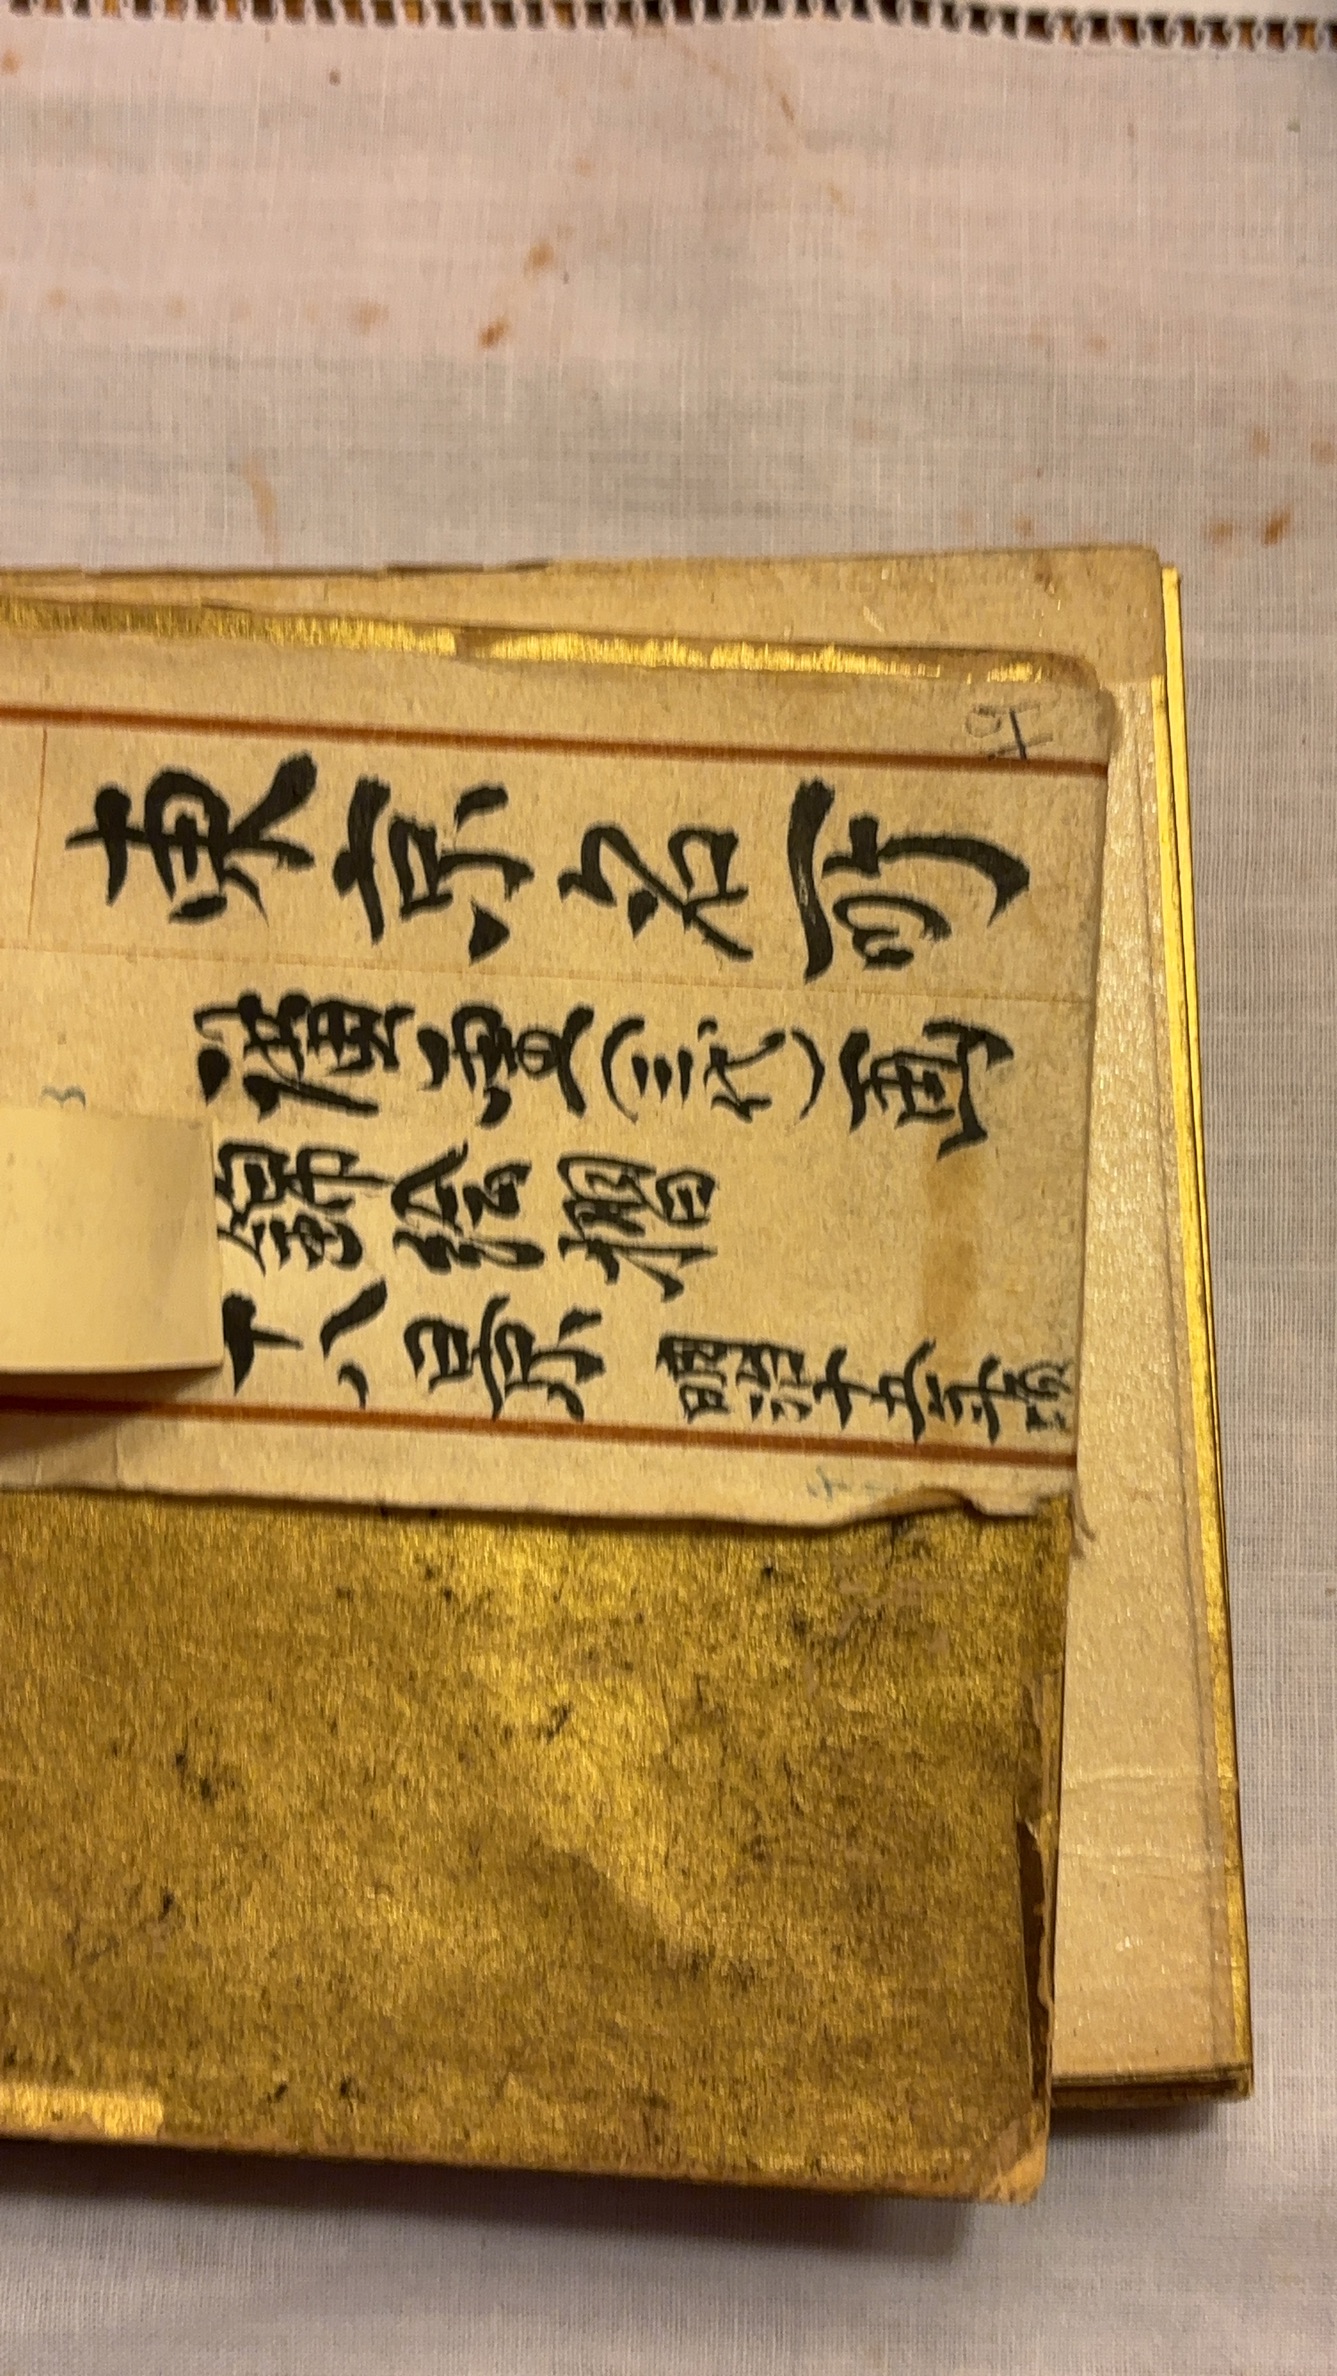 東京名所
廣重(三代)画
錦絵摺
十八景 明治十五年頃